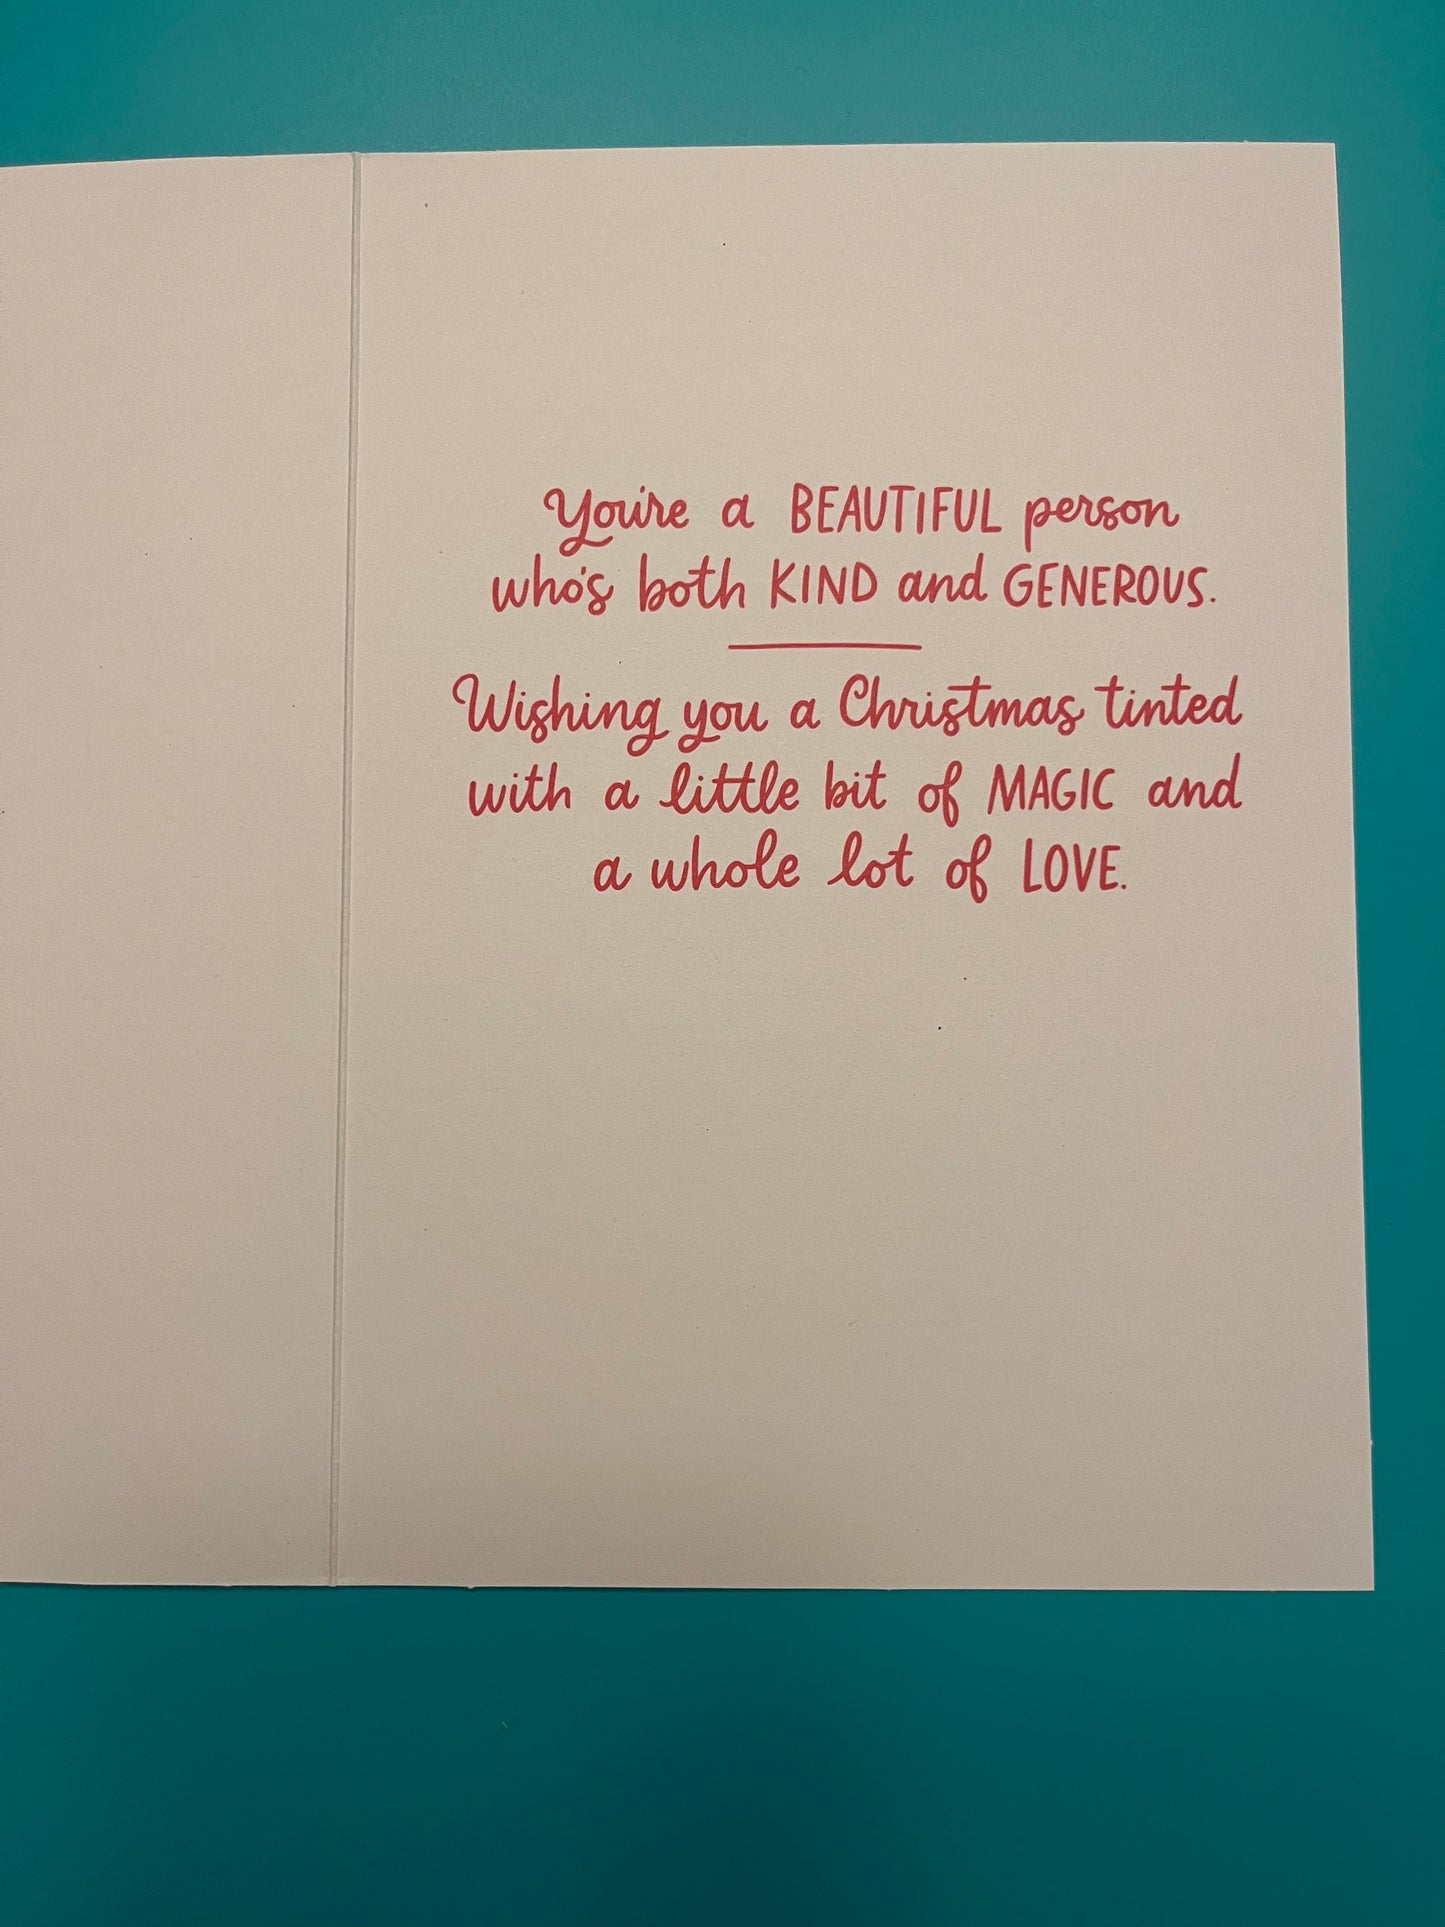 You're a BEAUTIFUL person
who's both KIND and GENEROUS.
Wishing you a Christmas tinted
with a little bit of MAGIC and
a whole lot of LOVE.